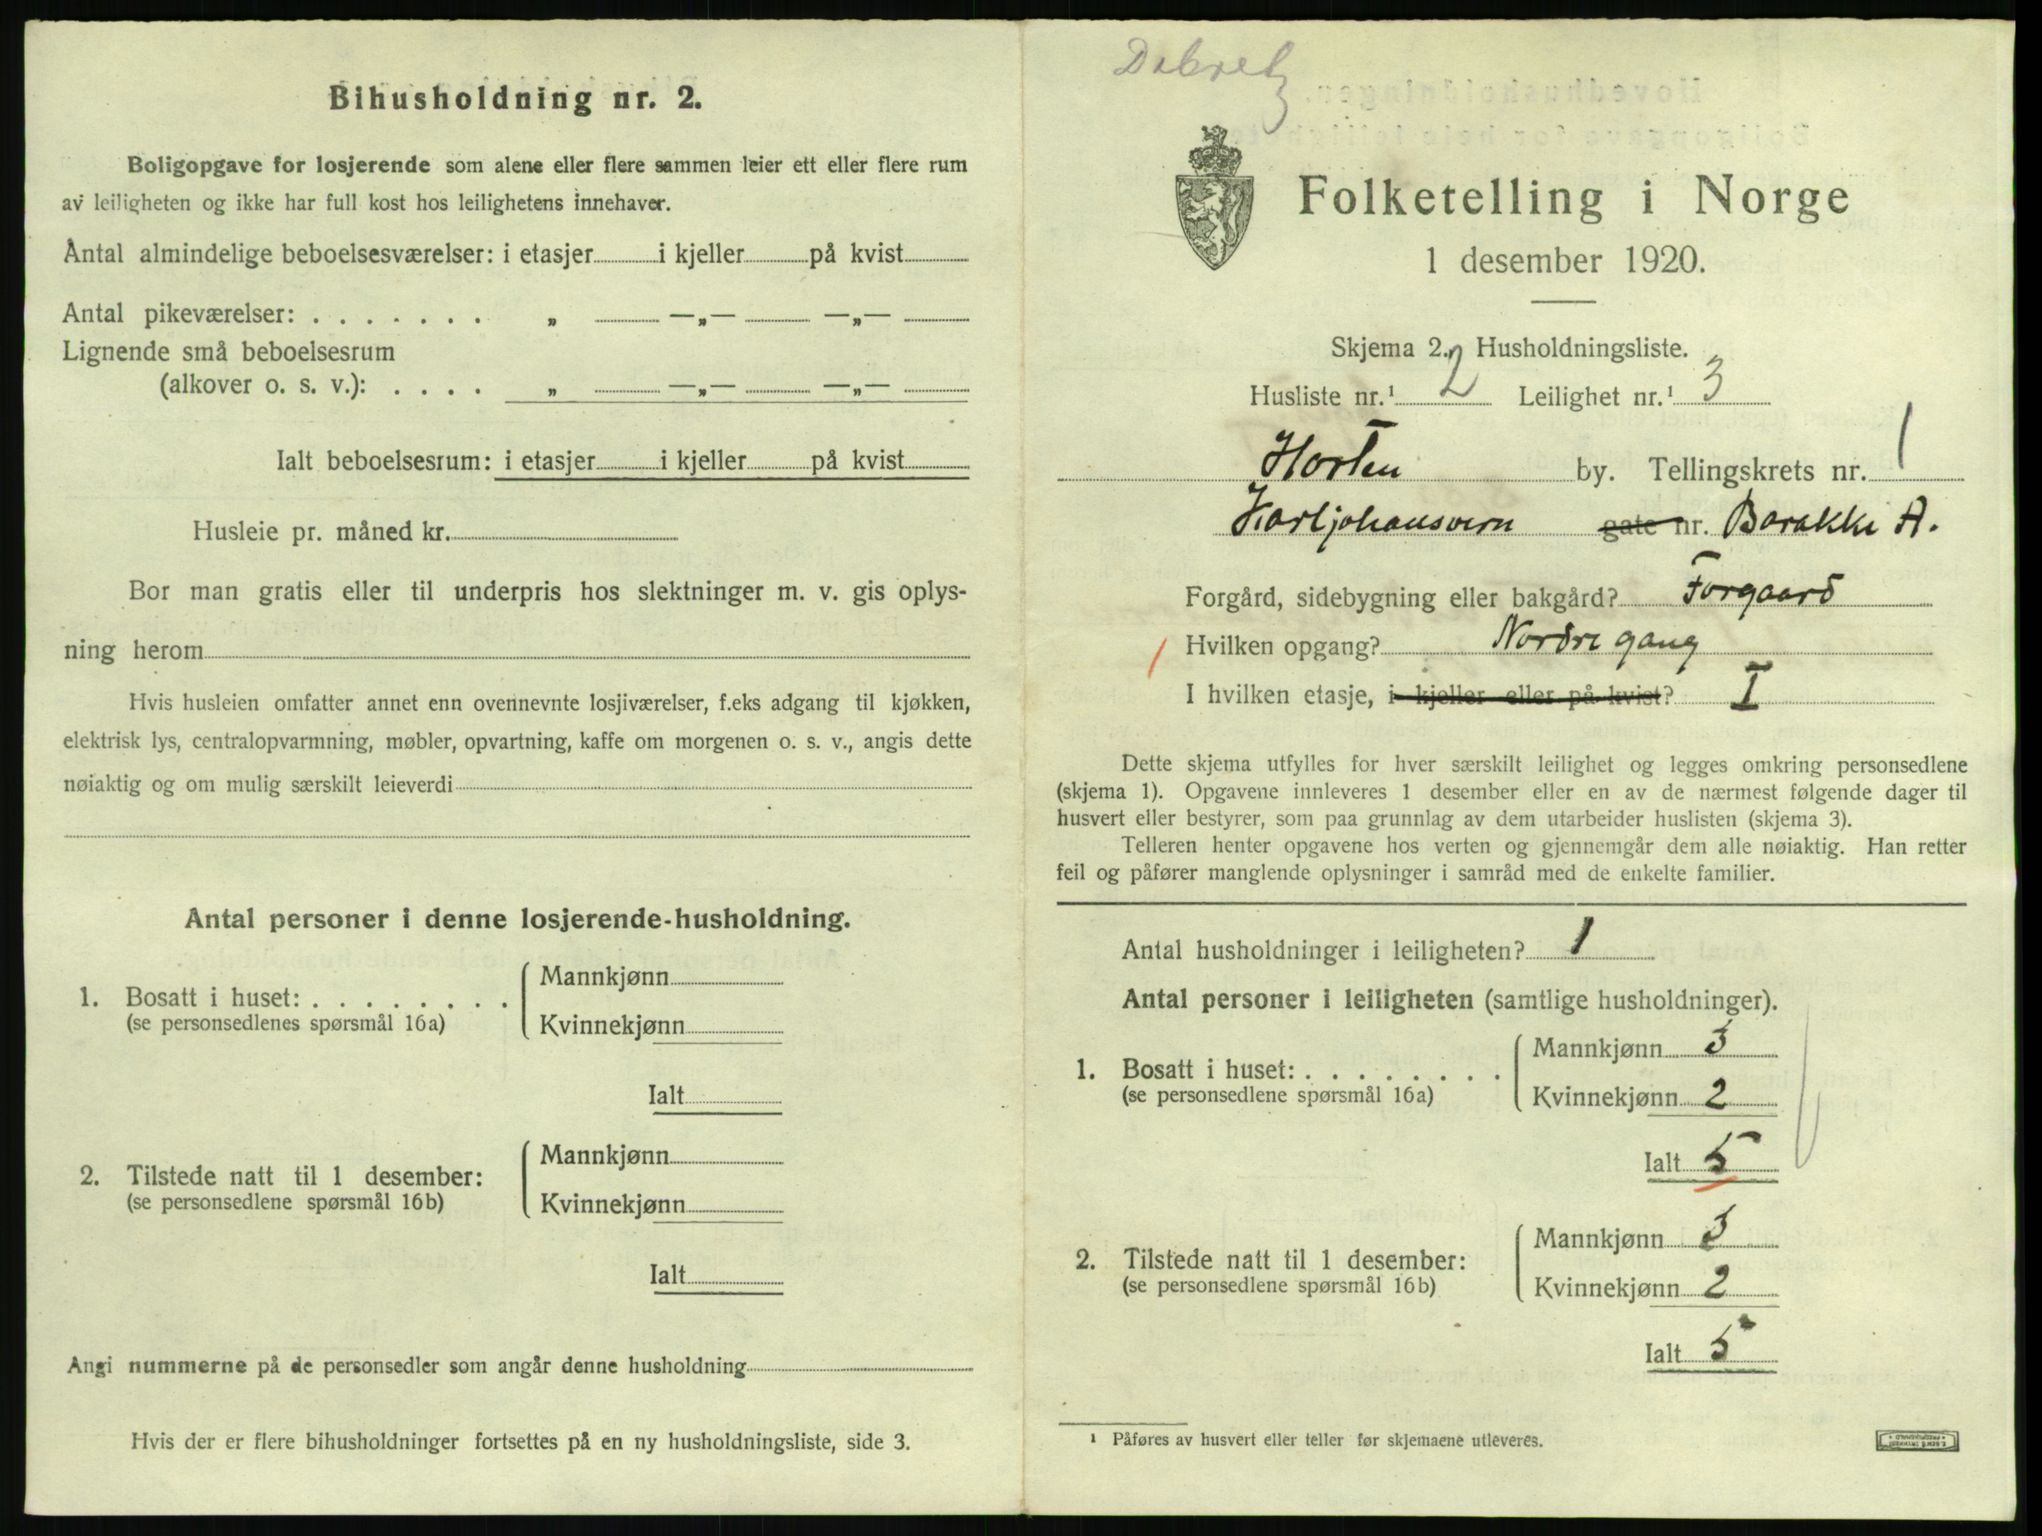 Bihusholdning nr. 2.
Boligopgave for losjerende som alene eller flere sammen leier ett eller flere rum
av leiligheten og ikke har full kost hos leilighetens innehaver.
Antal almindelige beboelsesværelser: i etasjer i kjeller på kvist
Antal pikeværelser: . . . . . . . „ —„— —„—
Lignende små beboelsesrum
(alkover o. s. v.): . . . . „ —„— —„—
Ialt beboelsesrum: i etasjer i kjeller på kvist
Husleie pr. måned kr.
Bor man gratis eller til underpris hos slektninger m. v. gis oplys-
ning herom
Hvis husleien omfatter annet enn ovennevnte losjiværelser, f.eks adgang til kjøkken,
elektrisk lys, centralopvarmning, møbler, opvartning, kaffe om morgenen o. s. v., angis dette
nøiaktig og om mulig særskilt leieverdi
Antal personer i denne losjerende-husholdning.
1. Bosatt i huset: . . . . . . . .
(se personsedlenes spørsmål 16a)
Mannkjønn
Kvinnekjønn
Ialt
2. Tilstede natt til 1 desember:
(se personsedlene spørsmål 16b)
Mannkjønn
Kvinnekjønn
Ialt
Angi nummerne på de personsedler som angår denne husholdning
Hvis der er flere bihusholdninger fortsettes på en ny husholdningsliste, side 3.
Folketelling i Norge
1 desember 1920.
Skjema 2. Husholdningsliste.
Husliste nr.¹ 2 Leilighet nr.¹ 3
Horten by. Tellingskrets nr. 1
Karljohansvern gate nr. Barakke A.
Forgård, sidebygning eller bakgård? Forgaard
Hvilken opgang? Nordre gang
I hvilken etasje, i kjeller eller på kvist? I
Dette skjema utfylles for hver særskilt leilighet og legges omkring personsedlene
(skjema 1). Opgavene innleveres 1 desember eller en av de nærmest følgende dager til
husvert eller bestyrer, som paa grunnlag av dem utarbeider huslisten (skjema 3).
Telleren henter opgavene hos verten og gjennemgår dem alle nøiaktig. Han retter
feil og påfører manglende oplysninger i samråd med de enkelte familier.
Antal husholdninger i leiligheten? 1
Antal personer i leiligheten (samtlige husholdninger).
1. Bosatt i huset: . . . . . . . .
(se personsedlene spørsmål 16a)
Mannkjønn 3
Kvinnekjønn 2
Ialt 5
2. Tilstede natt til 1 desember:
(se personsedlene spørsmål 16b)
Mannkjønn 3
Kvinnekjønn 2
Ialt 5
¹ Påføres av husvert eller teller før skjemaene utleveres.